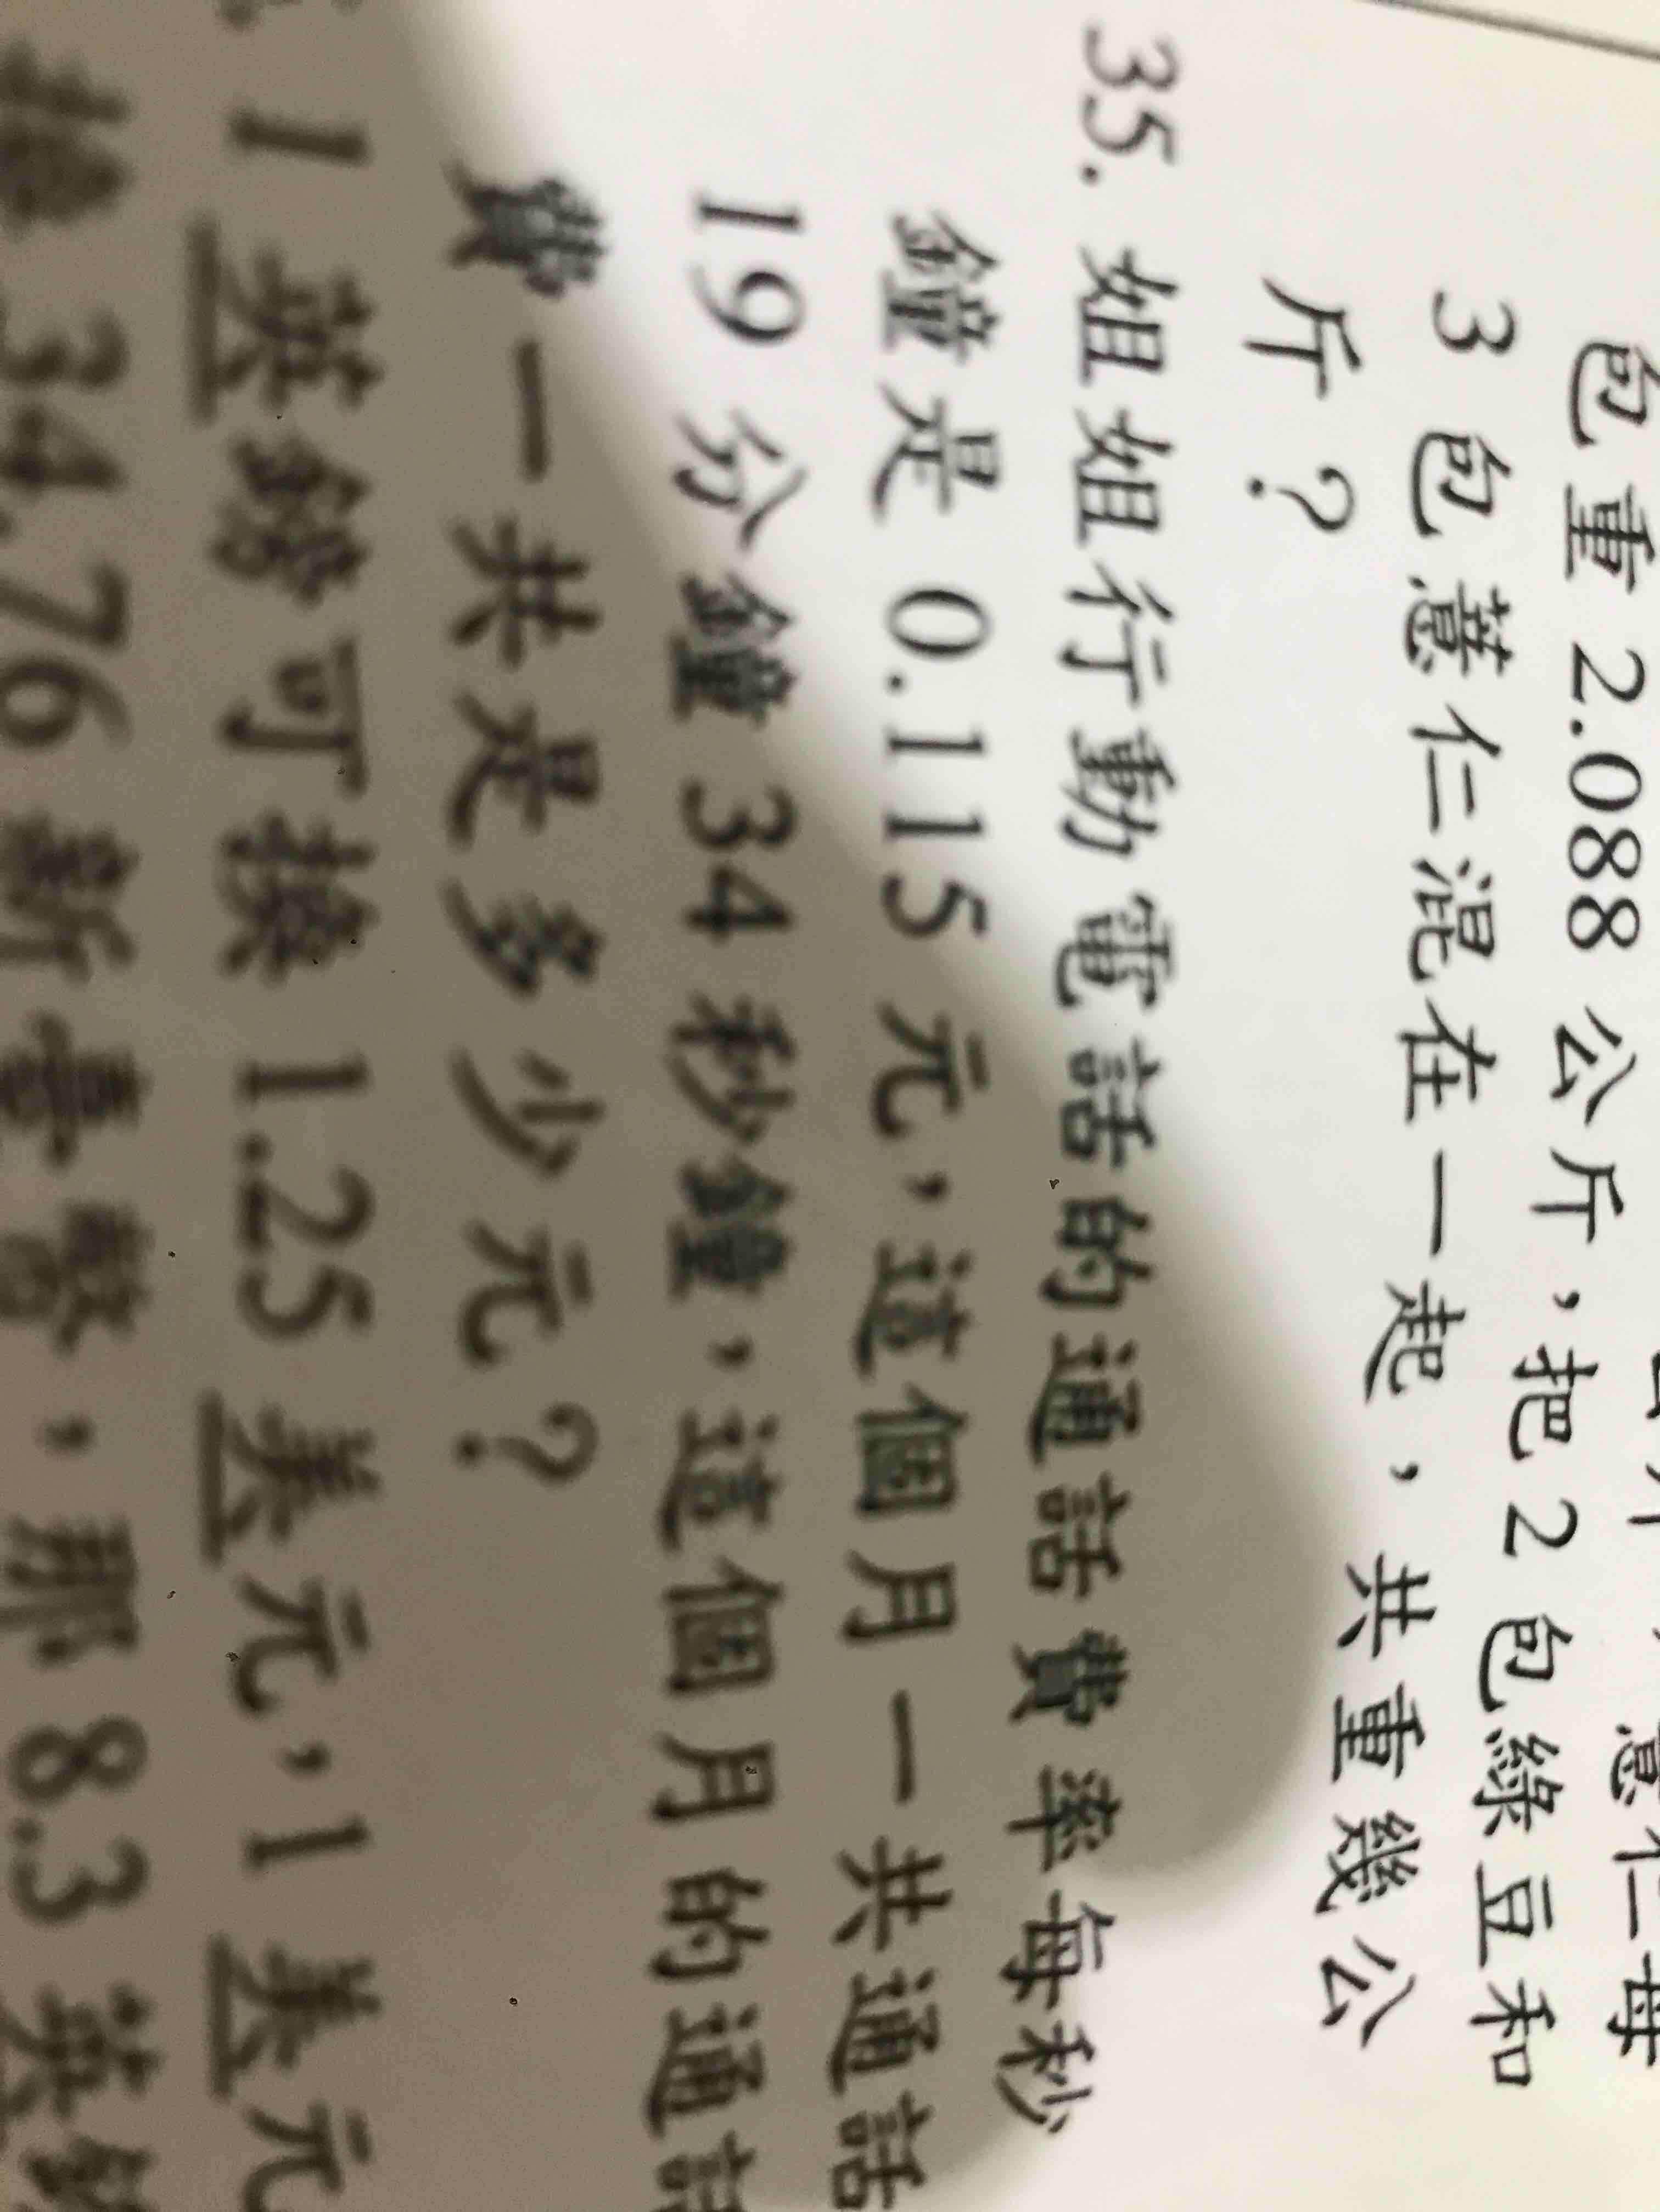 薏仁每
包重 2.088 公斤，把 2 包綠豆和
3 包薏仁混在一起，共重幾公
斤？
35. 姐姐行動電話的通話費率每秒
鐘是 0.115 元，這個月一共通話
19 分鐘 34 秒鐘，這個月的通話
費一共是多少元？
1 英鎊可換 1.25 美元，1 美元
換 34.76 新臺幣，那 8.3 英鎊